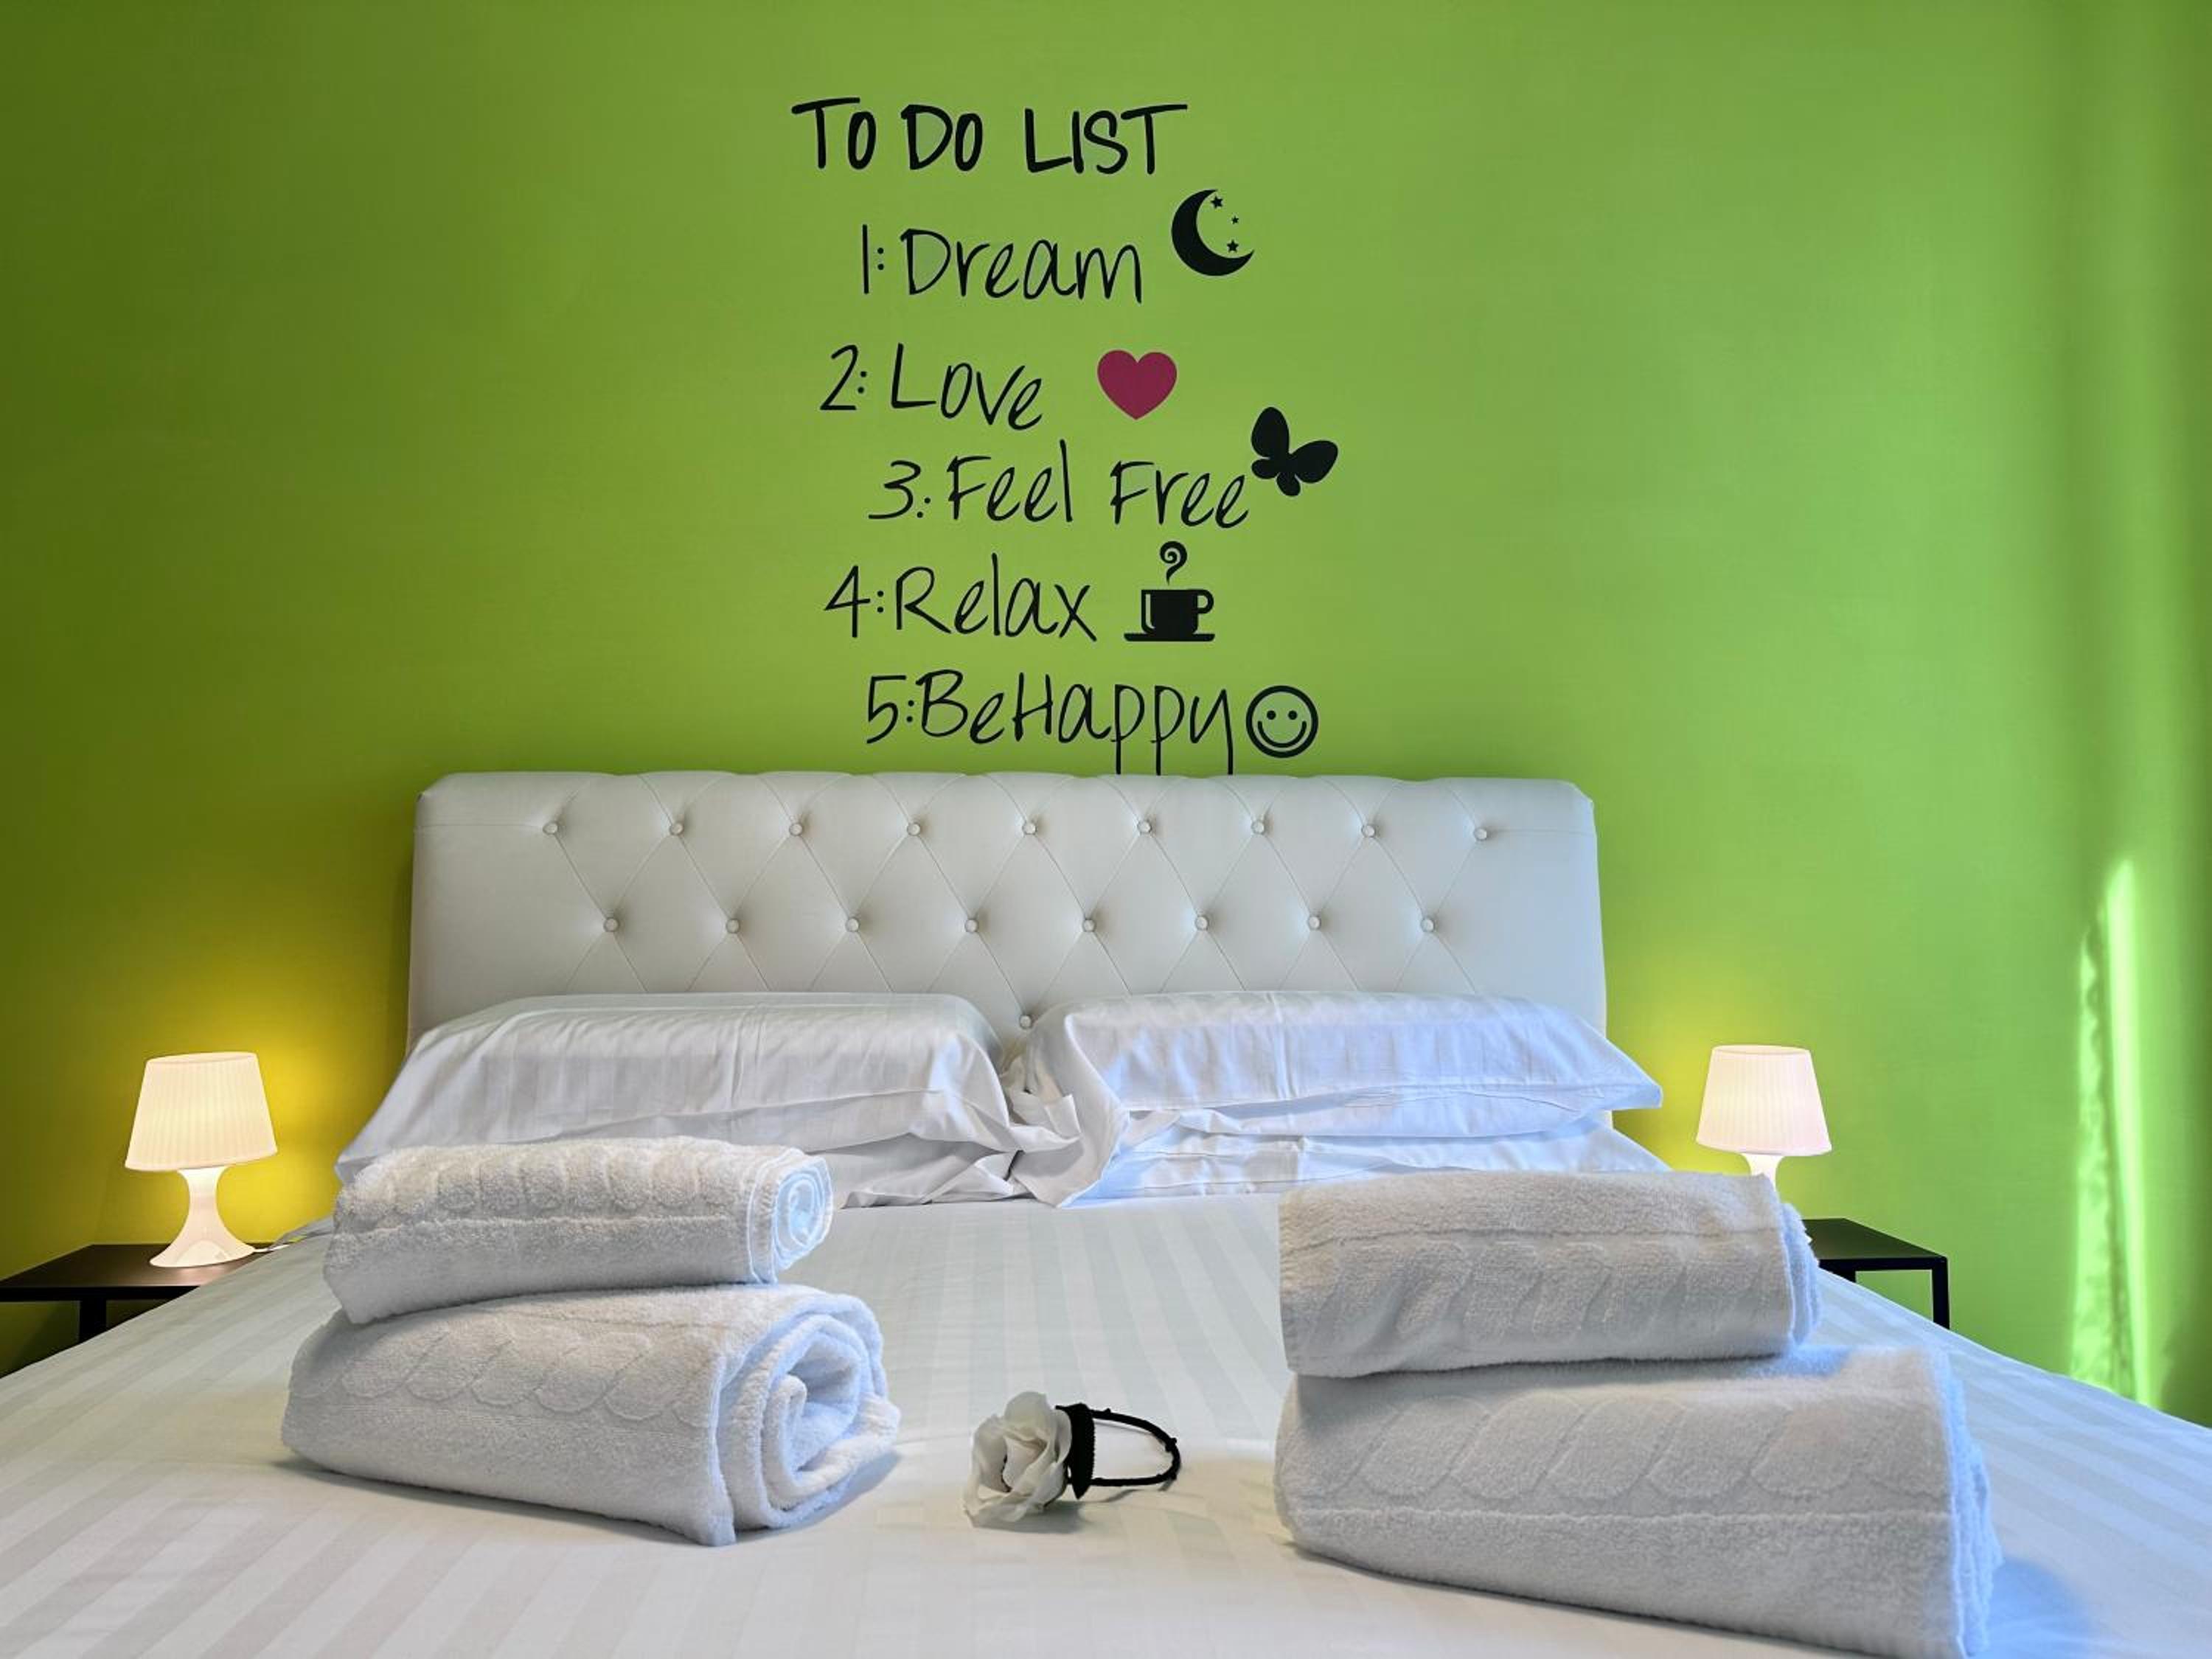 TO DO LIST
1: Dream
2: Love
3: Feel Free
4: Relax
5: BeHappy